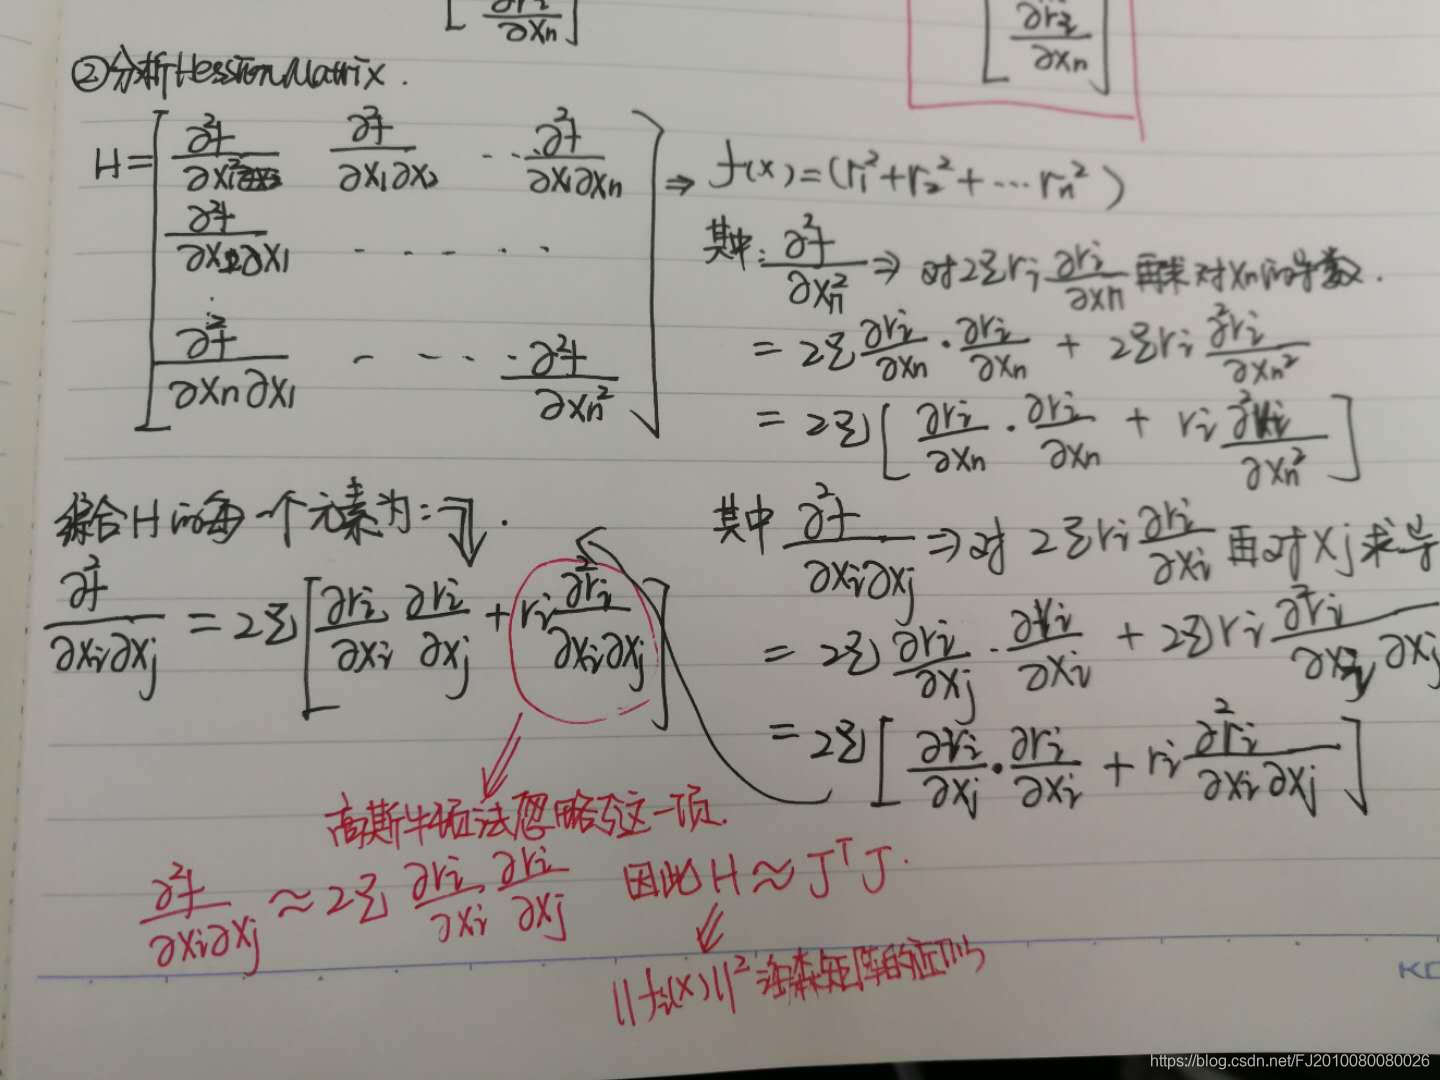 ∂xn
∂r2
∂xn
②分析Hession Matrix.
H = [ ∂²f/∂x1² ∂²f/∂x1∂x2 ... ∂²f/∂x1∂xn
∂²f/∂x2∂x1 . . . . .
⋮
∂²f/∂xn∂x1 - - - - . ∂²f/∂xn² ]
⇒ f(x)=(r1²+r2²+···rn²)
其中: ∂²f/∂xn² ⇒ 对2Σri ∂ri/∂xn 再求对xn的导数.
= 2Σ ∂ri/∂xn · ∂ri/∂xn + 2Σri ∂²ri/∂xn²
= 2Σ[ ∂ri/∂xn · ∂ri/∂xn + ri ∂²ri/∂xn² ]
综合H的每一个元素为:
∂²f/∂xi∂xj = 2Σ[ ∂ri/∂xi ∂ri/∂xj + ri ∂²ri/∂xi∂xj ]
其中 ∂²f/∂xi∂xj ⇒ 对 2Σri ∂ri/∂xi 再对xj求导
= 2Σ ∂ri/∂xj · ∂ri/∂xi + 2Σri ∂²ri/∂xi∂xj
= 2Σ[ ∂ri/∂xj · ∂ri/∂xi + ri ∂²ri/∂xi∂xj ]
高斯牛顿法忽略了这一项.
∂²f/∂xi∂xj ≈ 2Σ ∂ri/∂xi ∂ri/∂xj 因此 H ≈ JᵀJ.
||fi(x)||² 海森矩阵的证明
https://blog.csdn.net/FJ2010080080026